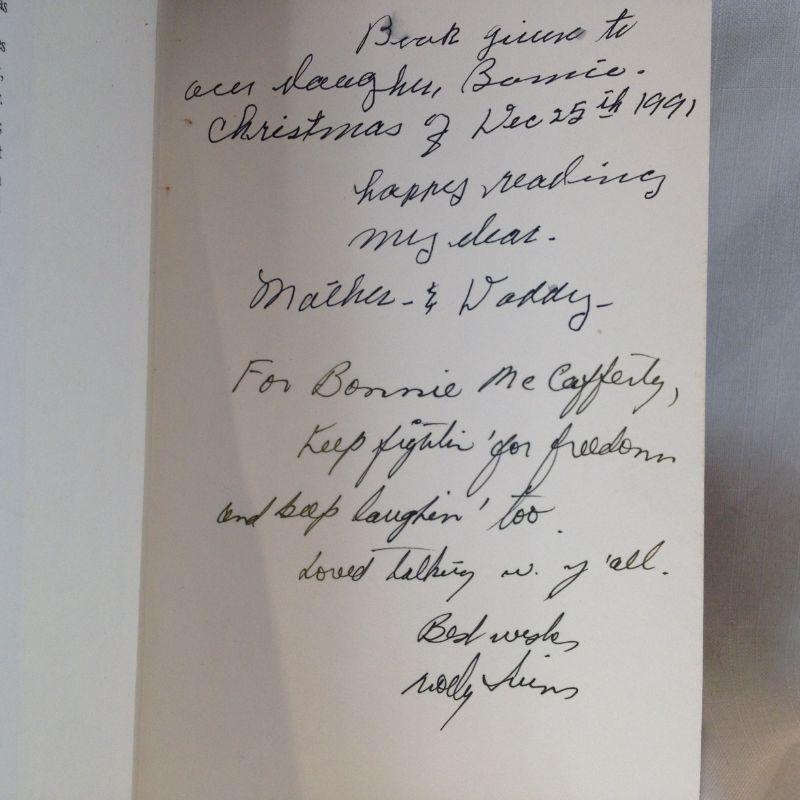 Book given to
our daughter, Bonnie.
Christmas of Dec 25th 1991
happy reading
my dear.
Mother - & Daddy -
For Bonnie McCafferty,
Keep fightin' for freedom
and keep laughin' too.
Loved talking w. y'all.
Best wishes
Molly Ivins